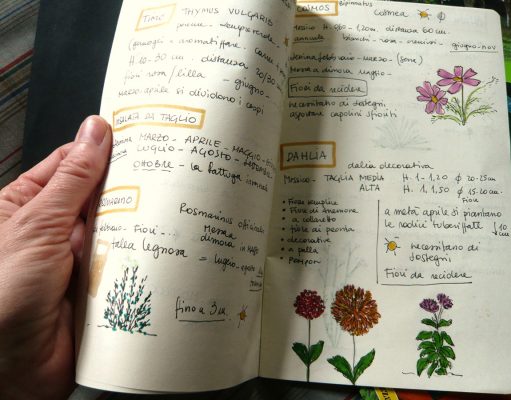 TIMO THYMUS VULGARIS
perenne - sempreverde
aromatizzare
H. 10-30 cm. distanza 20/30 cm
fiori rosa/lilla - giugno -
marzo-aprile si dividono i cespi
INSALATA DA TAGLIO
MARZO - APRILE - MAGGIO -
LUGLIO - AGOSTO - SETTEMBRE
OTTOBRE - la lattuga
ROSMARINO
Rosmarinus
febbraio - Fiori
Messa a
dimora in
talea legnosa = luglio-agosto
fino a 3 m.
COSMOS Bipinnatus
Messico H. 0,90-1,20m. distanza 60cm.
annuale bianchi-rosa-
giugno-nov
semina febbraio-marzo-
messa a dimora maggio-
Fiori da recidere
necessitano di sostegni
asportare capolini sfioriti
DAHLIA dalia decorativa
Messico - TAGLIA MEDIA H. 1-1,20 ϕ 20-25cm
ALTA H. 1,1,50 ϕ 15-20cm.
FIORI
• Fiore semplice
• Fiore di anemone
• a collaretto
• fiore di peonia
• decorative
• a palla
• Pompon
a metà aprile si piantano
le radici tuberiffate ↓ 10 cm
necessitano di
sostegni
Fiori da recidere